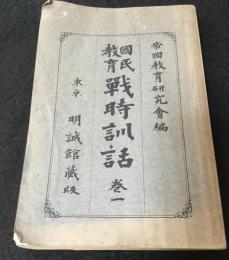 帝國教育研究會編
國民
教育
戰時訓話 巻一
東京 明誠館藏版